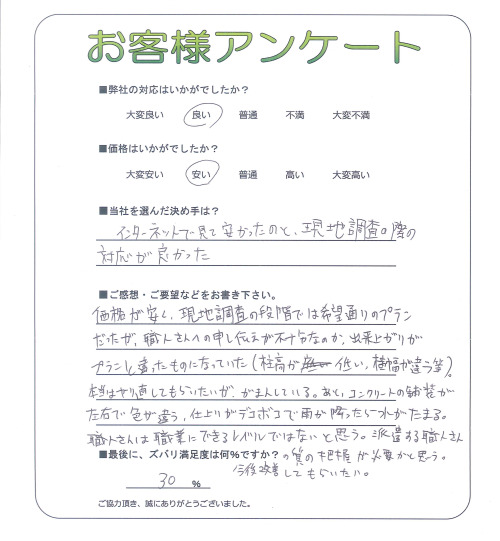 お客様アンケート
■弊社の対応はいかがでしたか？
大変良い 良い 普通 不満 大変不満
■価格はいかがでしたか？
大変安い 安い 普通 高い 大変高い
■当社を選んだ決め手は？
インターネットで見て安かったのと、現地調査の際の
対応が良かった
■ご感想・ご要望などをお書き下さい。
価格が安く、現地調査の段階では希望通りのプラン
だったが、職人さんへの申し伝えが不十分なのか、出来上がりが
プランと違ったものになっていた(柱高が 低い、横幅が違う等)。
本当はやり直してもらいたいが、がまんしている。あと、コンクリートの舗装が
左右で色が違う、仕上りがデコボコで雨が降ったら水がたまる。
職人さんは職業にできるレベルではないと思う。派遣する職人さん
の質の把握が必要かと思う。
今後改善してもらいたい。
■最後に、ズバリ満足度は何%ですか？
30 %
ご協力頂き、誠にありがとうございました。